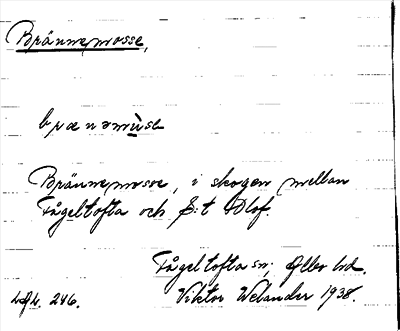 Brännemosse,
brænəmùsə
Brännemosse, i skogen mellan
Fågeltofta och S:t Olof.
Fågeltofta sn; Albo hd.
Viktor Welander 1938.
246.